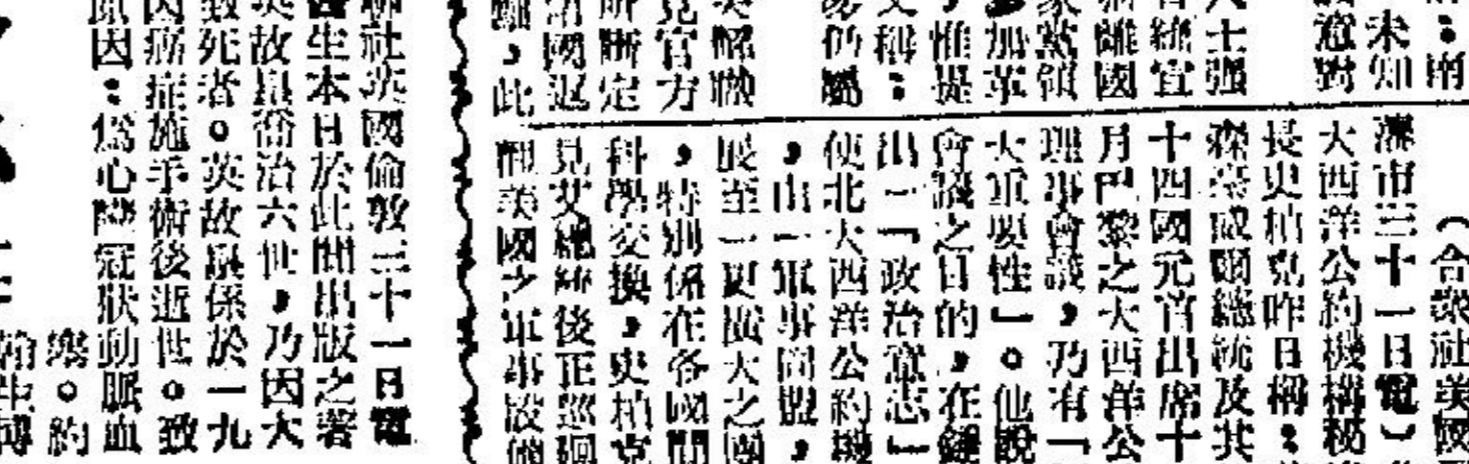 ：南
未知
意對
大士强
統宣
離國
家黨領
多加革
，惟提
文稱：
仍屬
英解職
見官方
所斷定
請國返
，此
（合衆社美國
深市三十一日電）
大西洋公約機構秘
長史柏克昨日稱：
森豪威爾總統及其
十四國元首出席十
月巴黎之大西洋公
理事會議，乃有「
大重要性」。他說
會議之目的，在鑄
出一「政治意志」
使北大西洋公約機
，由一軍事同盟，
展至一更廣大之團
，特別係在各國間
科學交換，史柏克
見艾總統後正巡迴
觀美國之軍事設備
聯社英國倫敦三十一日電
醫生本日於此間出版之著
英故皇喬治六世，乃因大
致死者。英故皇係於一九
因癌症施手術後逝世。致
原因：爲心臟冠狀動脈血
樂。約
翰生博